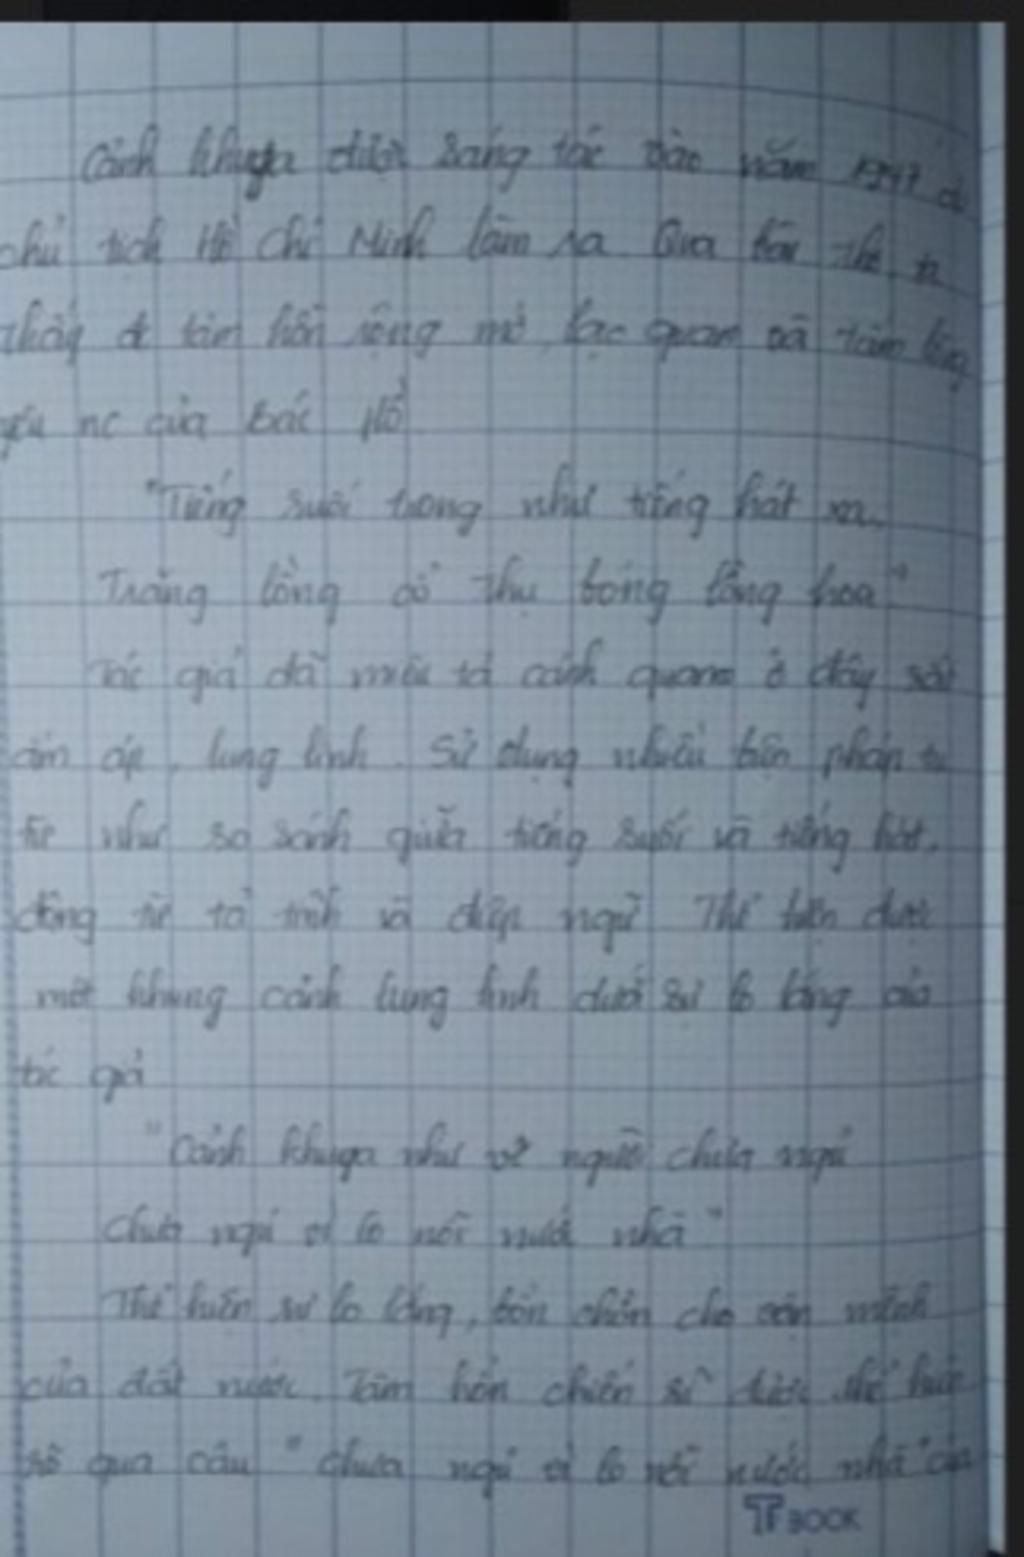 Cảnh khuya được sáng tác vào năm 1947 d
chủ tịch Hồ Chí Minh làm ra. Qua bài thơ t
thấy đc tâm hồn rộng mở, lạc quan và tấm lòng
yêu nc của Bác Hồ
"Tiếng suối trong như tiếng hát xa,
Trăng lồng cổ thụ bóng lồng hoa"
Tác giả đã miêu tả cảnh quang ở đây rất
ấm áp, lung linh. Sử dụng nhiều biện pháp tu
từ như so sánh giữa tiếng suối và tiếng hát,
động từ tả tình và điệp ngữ. Thể hiện được
một khung cảnh lung linh dưới sự lo lắng của
tác giả
"Cảnh khuya như vẽ người chưa ngủ
Chưa ngủ vì lo nỗi nước nhà"
Thể hiện sự lo lắng, bồn chồn cho vận mệnh
của đất nước. Tâm hồn chiến sĩ được thể hiện
rõ qua câu "chưa ngủ vì lo nỗi nước nhà" của
TF BOOK